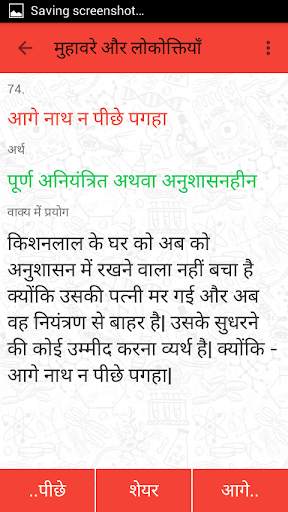 Saving screenshot...
मुहावरे और लोकोक्तियाँ
74.
आगे नाथ न पीछे पगहा
अर्थ
पूर्ण अनियंत्रित अथवा अनुशासनहीन
वाक्य में प्रयोग
किशनलाल के घर को अब को
अनुशासन में रखने वाला नहीं बचा है
क्योंकि उसकी पत्नी मर गई और अब
वह नियंत्रण से बाहर है| उसके सुधरने
की कोई उम्मीद करना व्यर्थ है| क्योंकि -
आगे नाथ न पीछे पगहा|
..पीछे
शेयर
आगे..